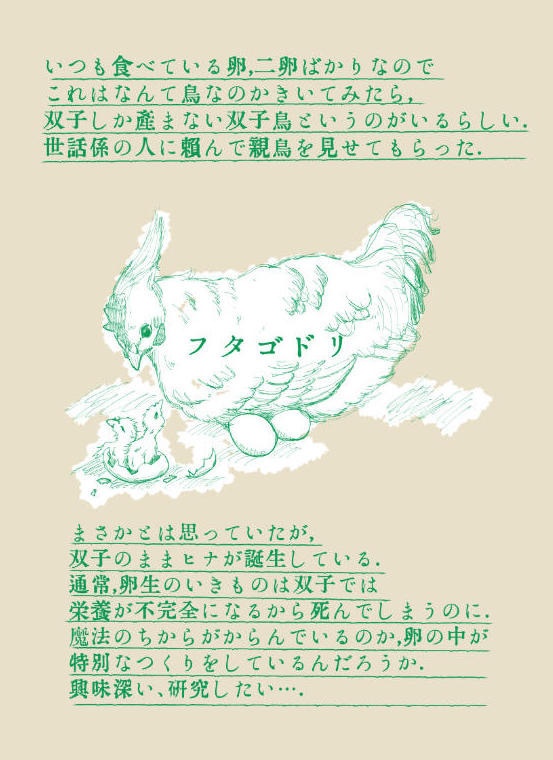 いつも食べている卵,二卵ばかりなので
これはなんて鳥なのかきいてみたら,
双子しか産まない双子鳥というのがいるらしい.
世話係の人に頼んで親鳥を見せてもらった.
フタゴドリ
まさかとは思っていたが,
双子のままヒナが誕生している.
通常,卵生のいきものは双子では
栄養が不完全になるから死んでしまうのに.
魔法のちからがからんでいるのか,卵の中が
特別なつくりをしているんだろうか.
興味深い、研究したい….